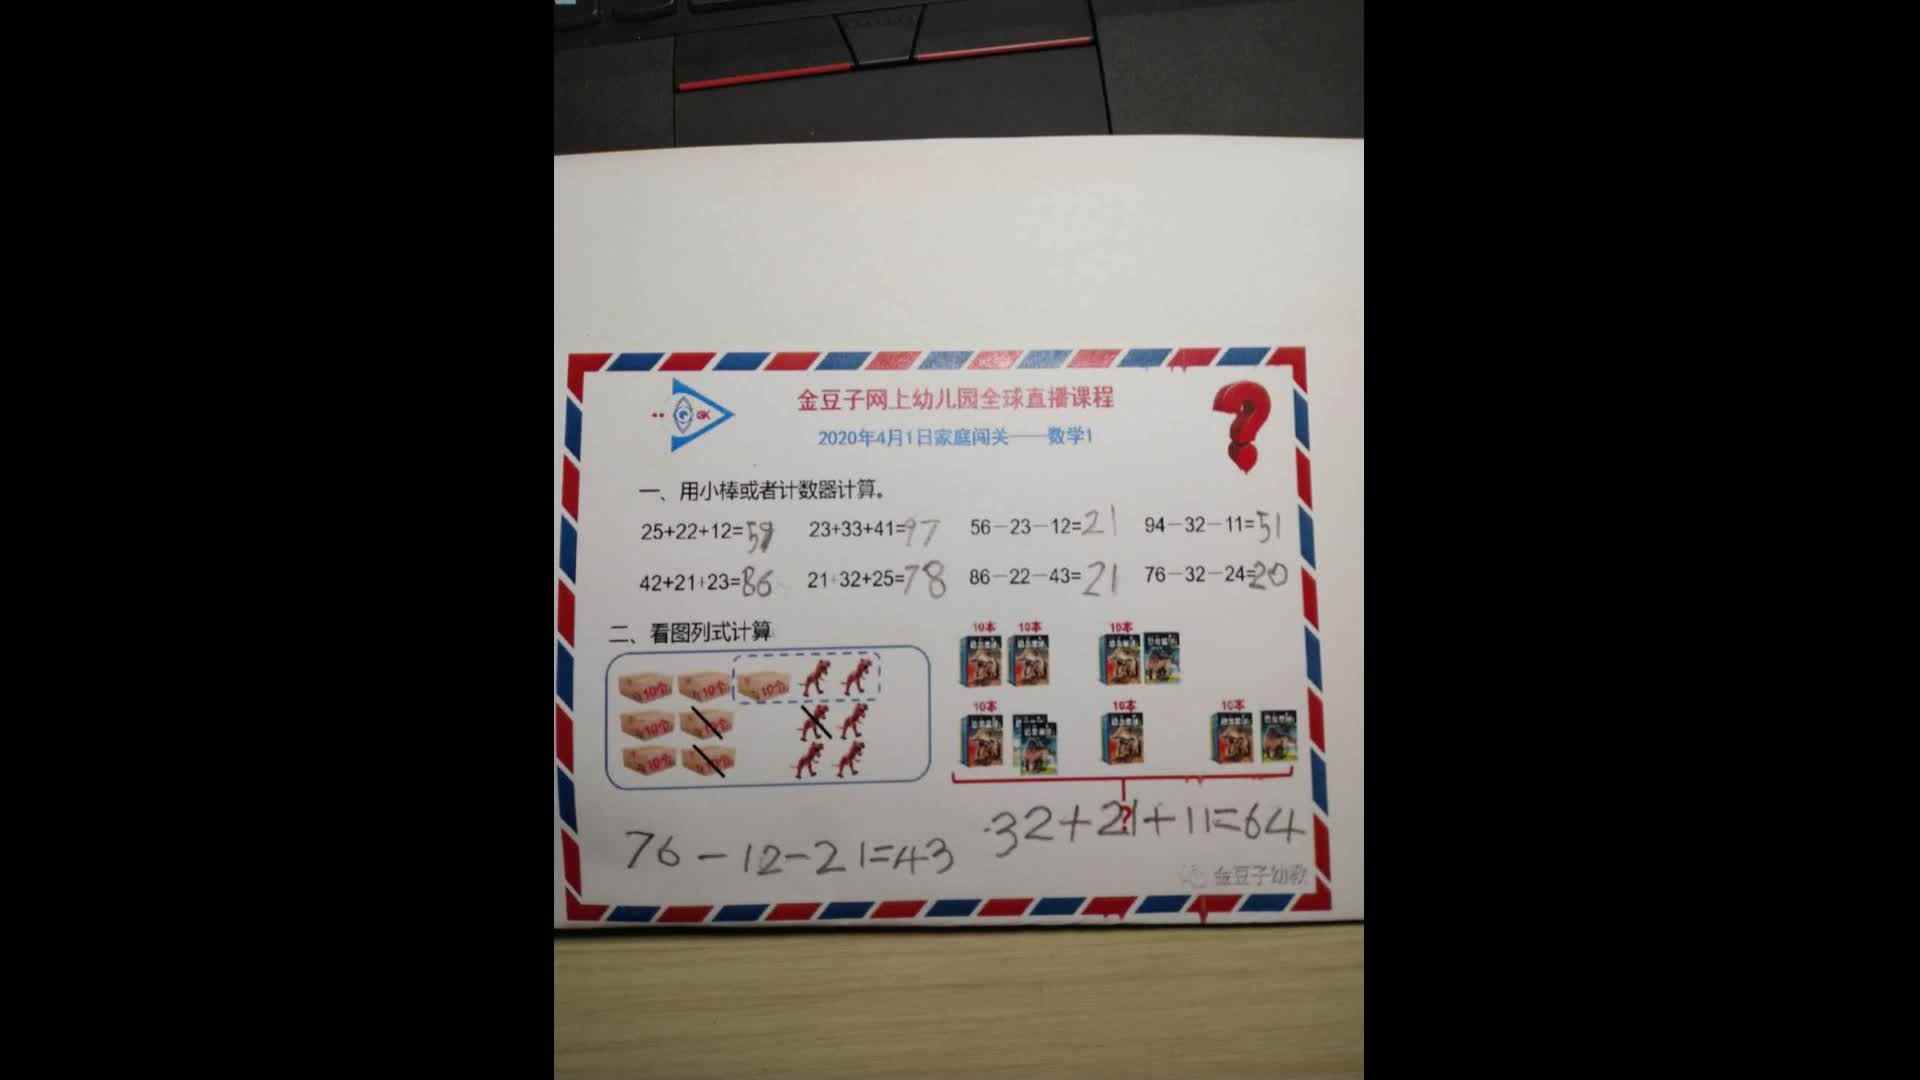 GK
金豆子网上幼儿园全球直播课程
2020年4月1日家庭闯关——数学1
一、用小棒或者计数器计算。
25+22+12=59 23+33+41=97 56－23－12=21 94－32－11=51
42+21+23=86 21+32+25=78 86－22－43=21 76－32－24=20
二、看图列式计算
10个 10个 10个
10个 10个
10个 10个
10本 10本 10本
10本 10本 10本
?
76-12-21=43
32+21+11=64
金豆子幼教